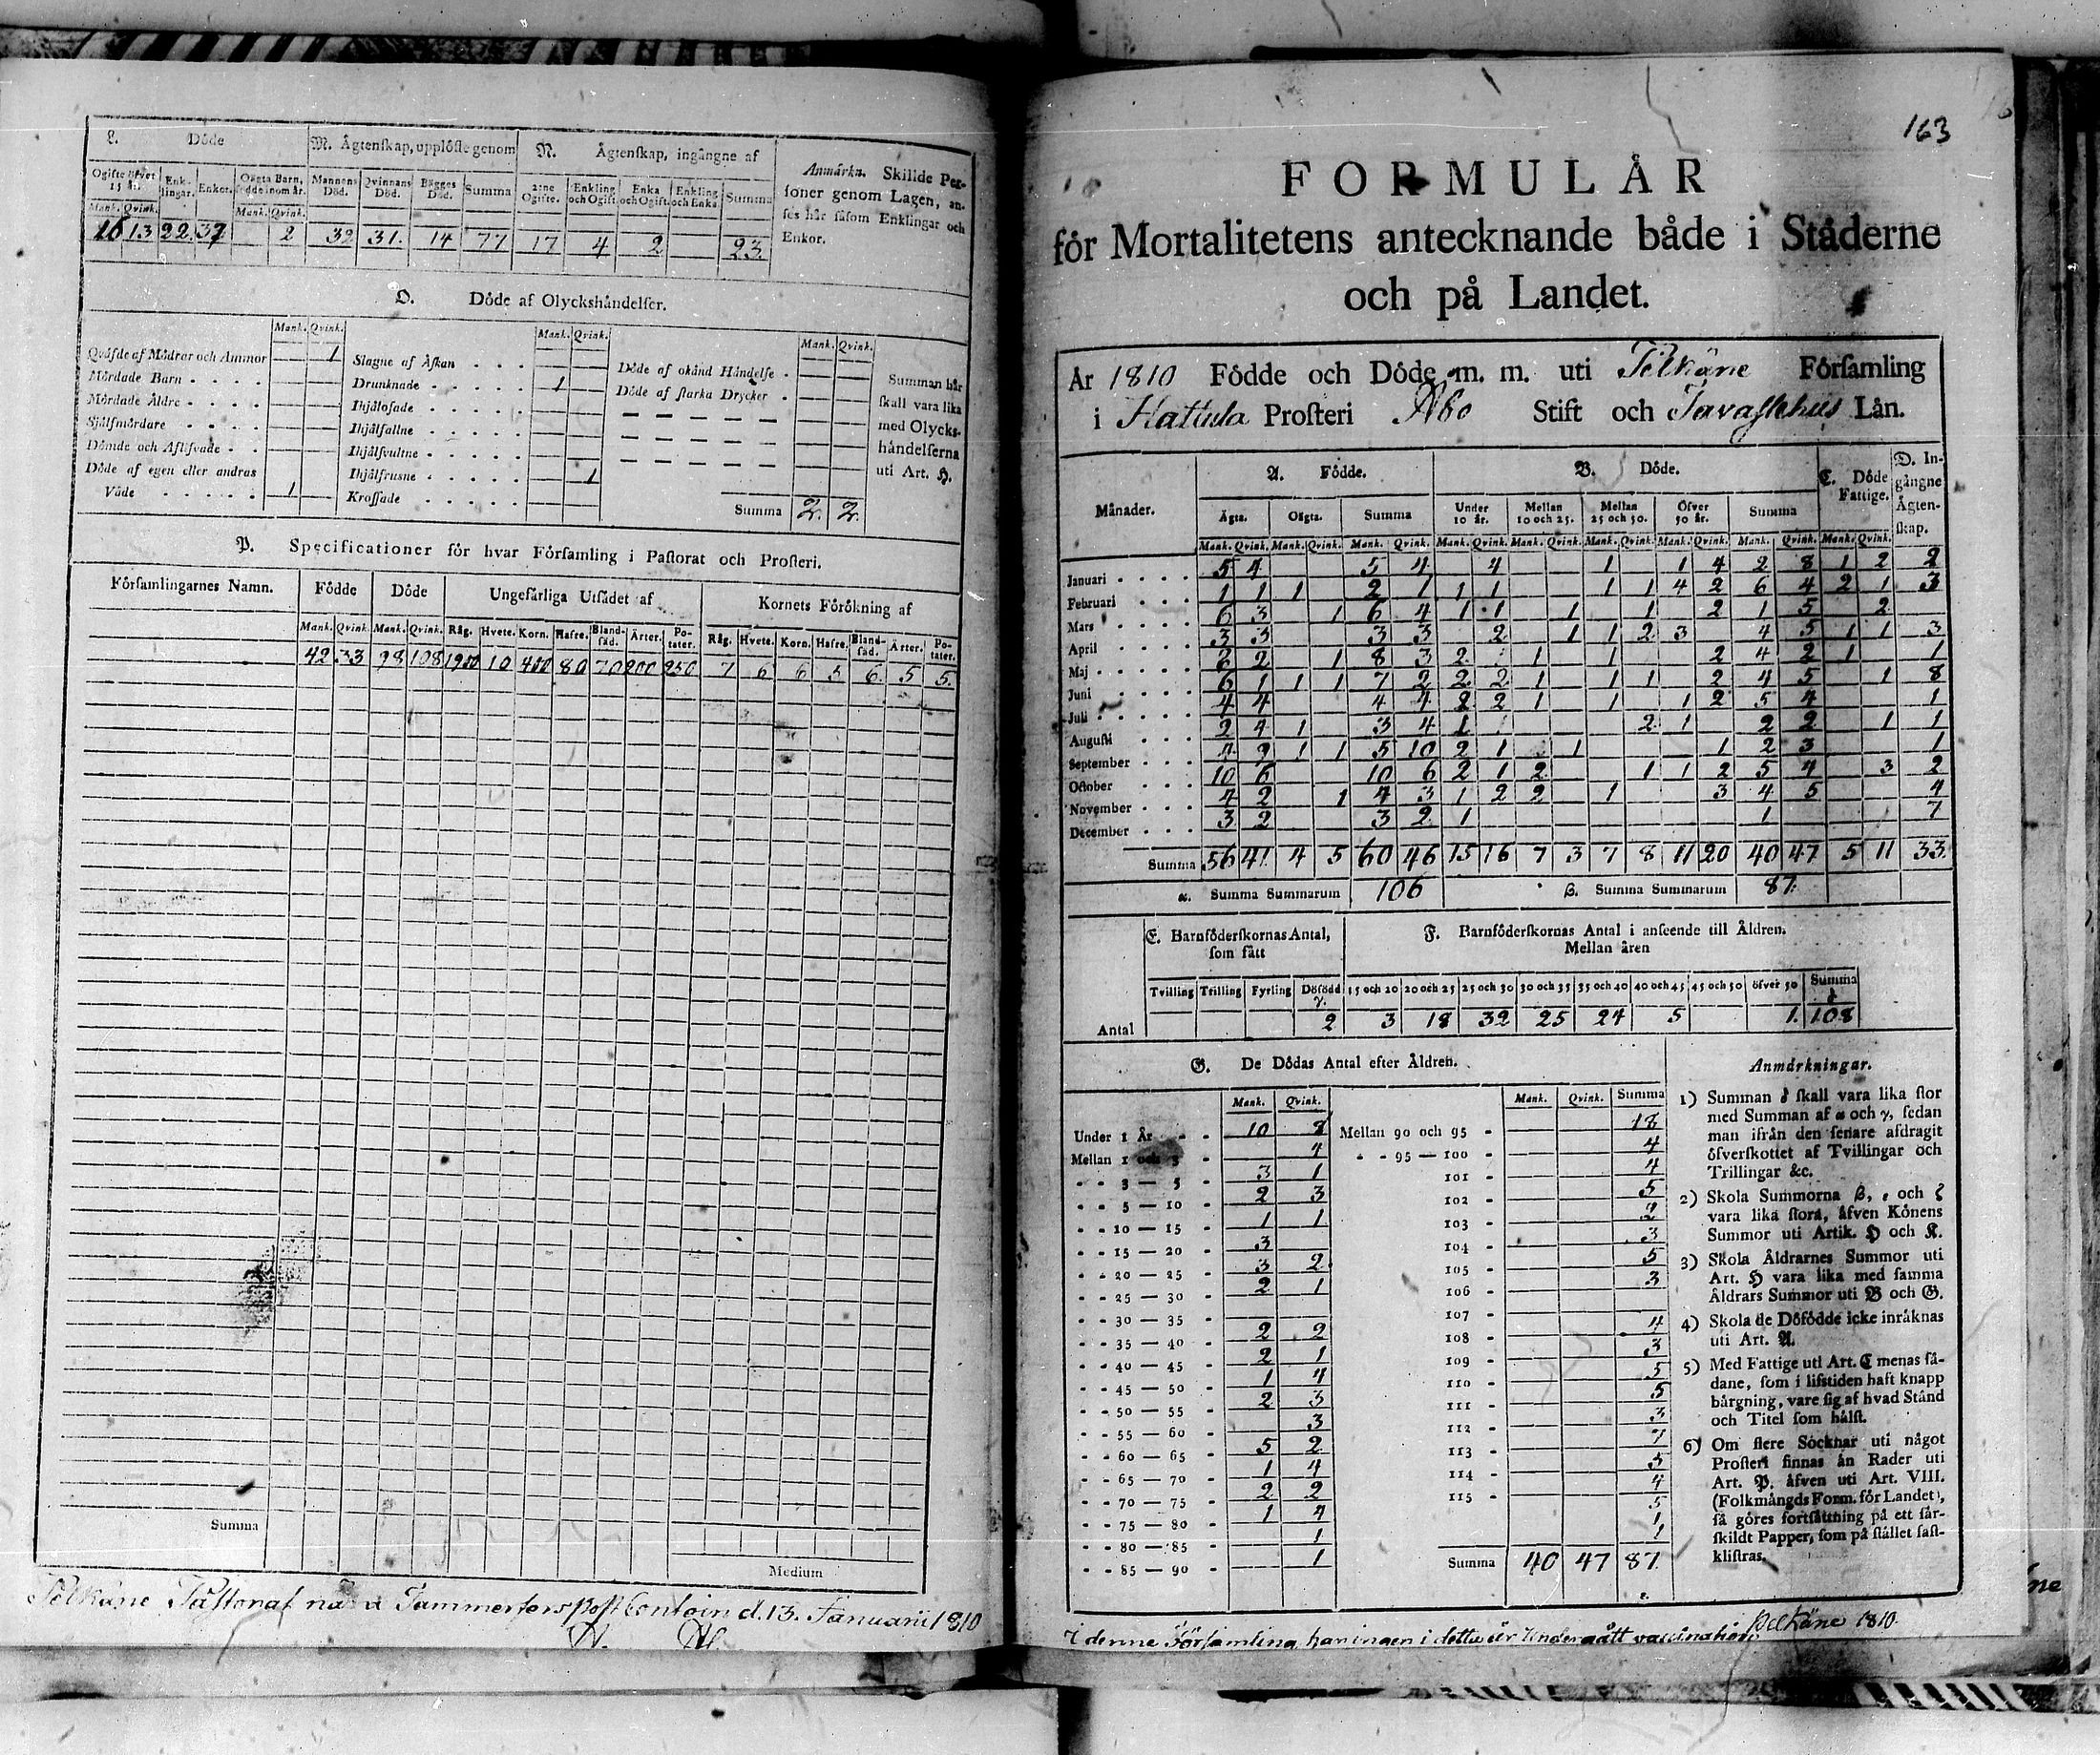 L. Döde
M. Ägtenskap, upplöste genom
N. Ägtenskap, ingångne af
Anmärkn. Skillde Personer genom Lagen, anses här såsom Enklingar och Enkor.
Ogifte öfver 15 år. Enklingar. Enkor. Oägta Barn, födde inom år. Mannens Död. Qvinnans Död. Bägges Död. Summa 2:ne Ogifte. Enkling och Ogift. Enka och Ogift. Enkling och Enka Summa
Mank. Qvink. Mank. Qvink.
16 13 22 37 2 32 31. 14 77 17 4 2 23.
O. Döde af Olyckshändelser.
Mank. Qvink. Mank. Qvink. Mank. Qvink.
Qväfde af Mödrar och Ammor 1
Mördade Barn
Mördade Äldre
Självmördare
Dömde och Aflifvade
Döde af egen eller andras Våde 1
Slagne af Åskan
Drunknade 1
Ihjälosade
Ihjälfallne
Ihjälsvultne
Ihjälfrusne 1
Krossade
Döde af okänd Händelse
Döde af starka Drycker
Summa 2. 2.
Summan här skall vara lika med Olyckshändelserna uti Art. H.
P. Specificationer för hvar Församling i Pastorat och Prosteri.
Församlingarnes Namn. Födde Döde Ungefärliga Utsädet af Kornets Förökning af
Mank. Qvink. Mank. Qvink. Råg. Hvete. Korn. Hafre. Blandsäd. Ärter. Potater. Råg. Hvete. Korn. Hafre. Blandsäd. Ärter. Potater.
42 33 98 108 10 400 80 70 200 250 7 6 6 5 6. 5 5.
Summa
Medium
Januarii 1810
163
FORMULÄR
för Mortalitetens antecknande både i Städerne
och på Landet.
År 1810 Födde och Döde m. m. uti Pelkäne Församling
i Hattula Prosteri Åbo Stift och Tavastehus Län.
Månader. A. Födde. B. Döde. C. Döde Fattige. D. Ingångne Ägtenskap.
Ägta. Oägta. Summa Under 10 år. Mellan 10 och 25. Mellan 25 och 50. Öfver 50 år. Summa
Mank. Qvink. Mank. Qvink. Mank. Qvink. Mank. Qvink. Mank. Qvink. Mank. Qvink. Mank. Qvink. Mank. Qvink. Mank. Qvink.
Januari 5 4 5 4 4 1 1 4 2 8 1 2 2
Februari 1 1 1 2 1 1 1 1 1 4 2 6 4 2 1 3
Mars 6 3 1 6 4 1 1 1 1 2 1 5 2
April 3 3 3 3 2 1 1 2 3 4 5 1 1 3
Maj 2 1 8 3 2 1 1 2 4 2 1 1
Juni 6 1 1 1 7 2 2 2 1 1 1 2 4 5 1 8
Juli 4 4 4 4 2 2 1 1 1 2 5 4 1
Augusti 2 4 1 3 4 1 2 1 2 2 1 1
September 4 9 1 1 5 10 2 1 1 1 2 3 1
October 10 6 10 6 2 1 2 1 1 2 5 4 3 2
November 4 2 1 4 3 1 2 2 1 3 4 5 4
December 3 2 3 2 1 1 7
Summa 56 41 4 5 60 46 15 16 7 3 7 8 11 20 40 47 5 11 33.
α. Summa Summarum 106 β. Summa Summarum 87.
E. Barnföderskornas Antal, som fått
F. Barnföderskornas Antal i anseende till Åldren.
Mellan åren
Tvilling Trilling Fyrling Dödfödd γ. 15 och 20 20 och 25 25 och 30 30 och 35 35 och 40 40 och 45 45 och 50 öfver 50 Summa δ
Antal 2 3 18 32 25 24 5 1. 108
G. De Dödas Antal efter Åldren.
Mank. Qvink. Mank. Qvink. Summa
Under 1 År 10 8 Mellan 90 och 95 18
Mellan 1 och 3 4 95 — 100 4
3 — 5 3 1 101 4
5 — 10 2 3 102 5
10 — 15 1 1 103 2
15 — 20 3 104 3
20 — 25 3 2 105 5
25 — 30 2 1 106 3
30 — 35 107
35 — 40 2 2 108 4
40 — 45 2 1 109 3
45 — 50 1 4 110 5
50 — 55 2 3 111 5
55 — 60 3 112 3
60 — 65 5 2 113 7
65 — 70 1 4 114 5
70 — 75 2 2 115 4
75 — 80 1 4 5
80 — 85 1 1
85 — 90 1 1
Summa 40 47 87.
Anmärkningar.
1) Summan δ skall vara lika stor
med Summan af α och γ, sedan
man ifrån den senare afdragit
öfverskottet af Tvillingar och
Trillingar &c.
2) Skola Summorna β, ε och ζ
vara lika stora, äfven Könens
Summor uti Artik. H och K.
3) Skola Åldrarnes Summor uti
Art. H vara lika med samma
Åldrars Summor uti B och G.
4) Skola de Döfödde icke inräknas
uti Art. A.
5) Med Fattige uti Art. C menas så-
dane, som i lifstiden haft knapp
bärgning, vare sig af hvad Stånd
och Titel som hälst.
6) Om flere Socknar uti något
Prosteri finnas än Rader uti
Art. P. äfven uti Art. VIII.
(Folkmängds Form. för Landet),
så göres fortsättning på ett sär-
skildt Papper, som på stället fast-
klistras.
I denne Församling har ingen i detta år undergått vaccination. Pelkäne 1810.